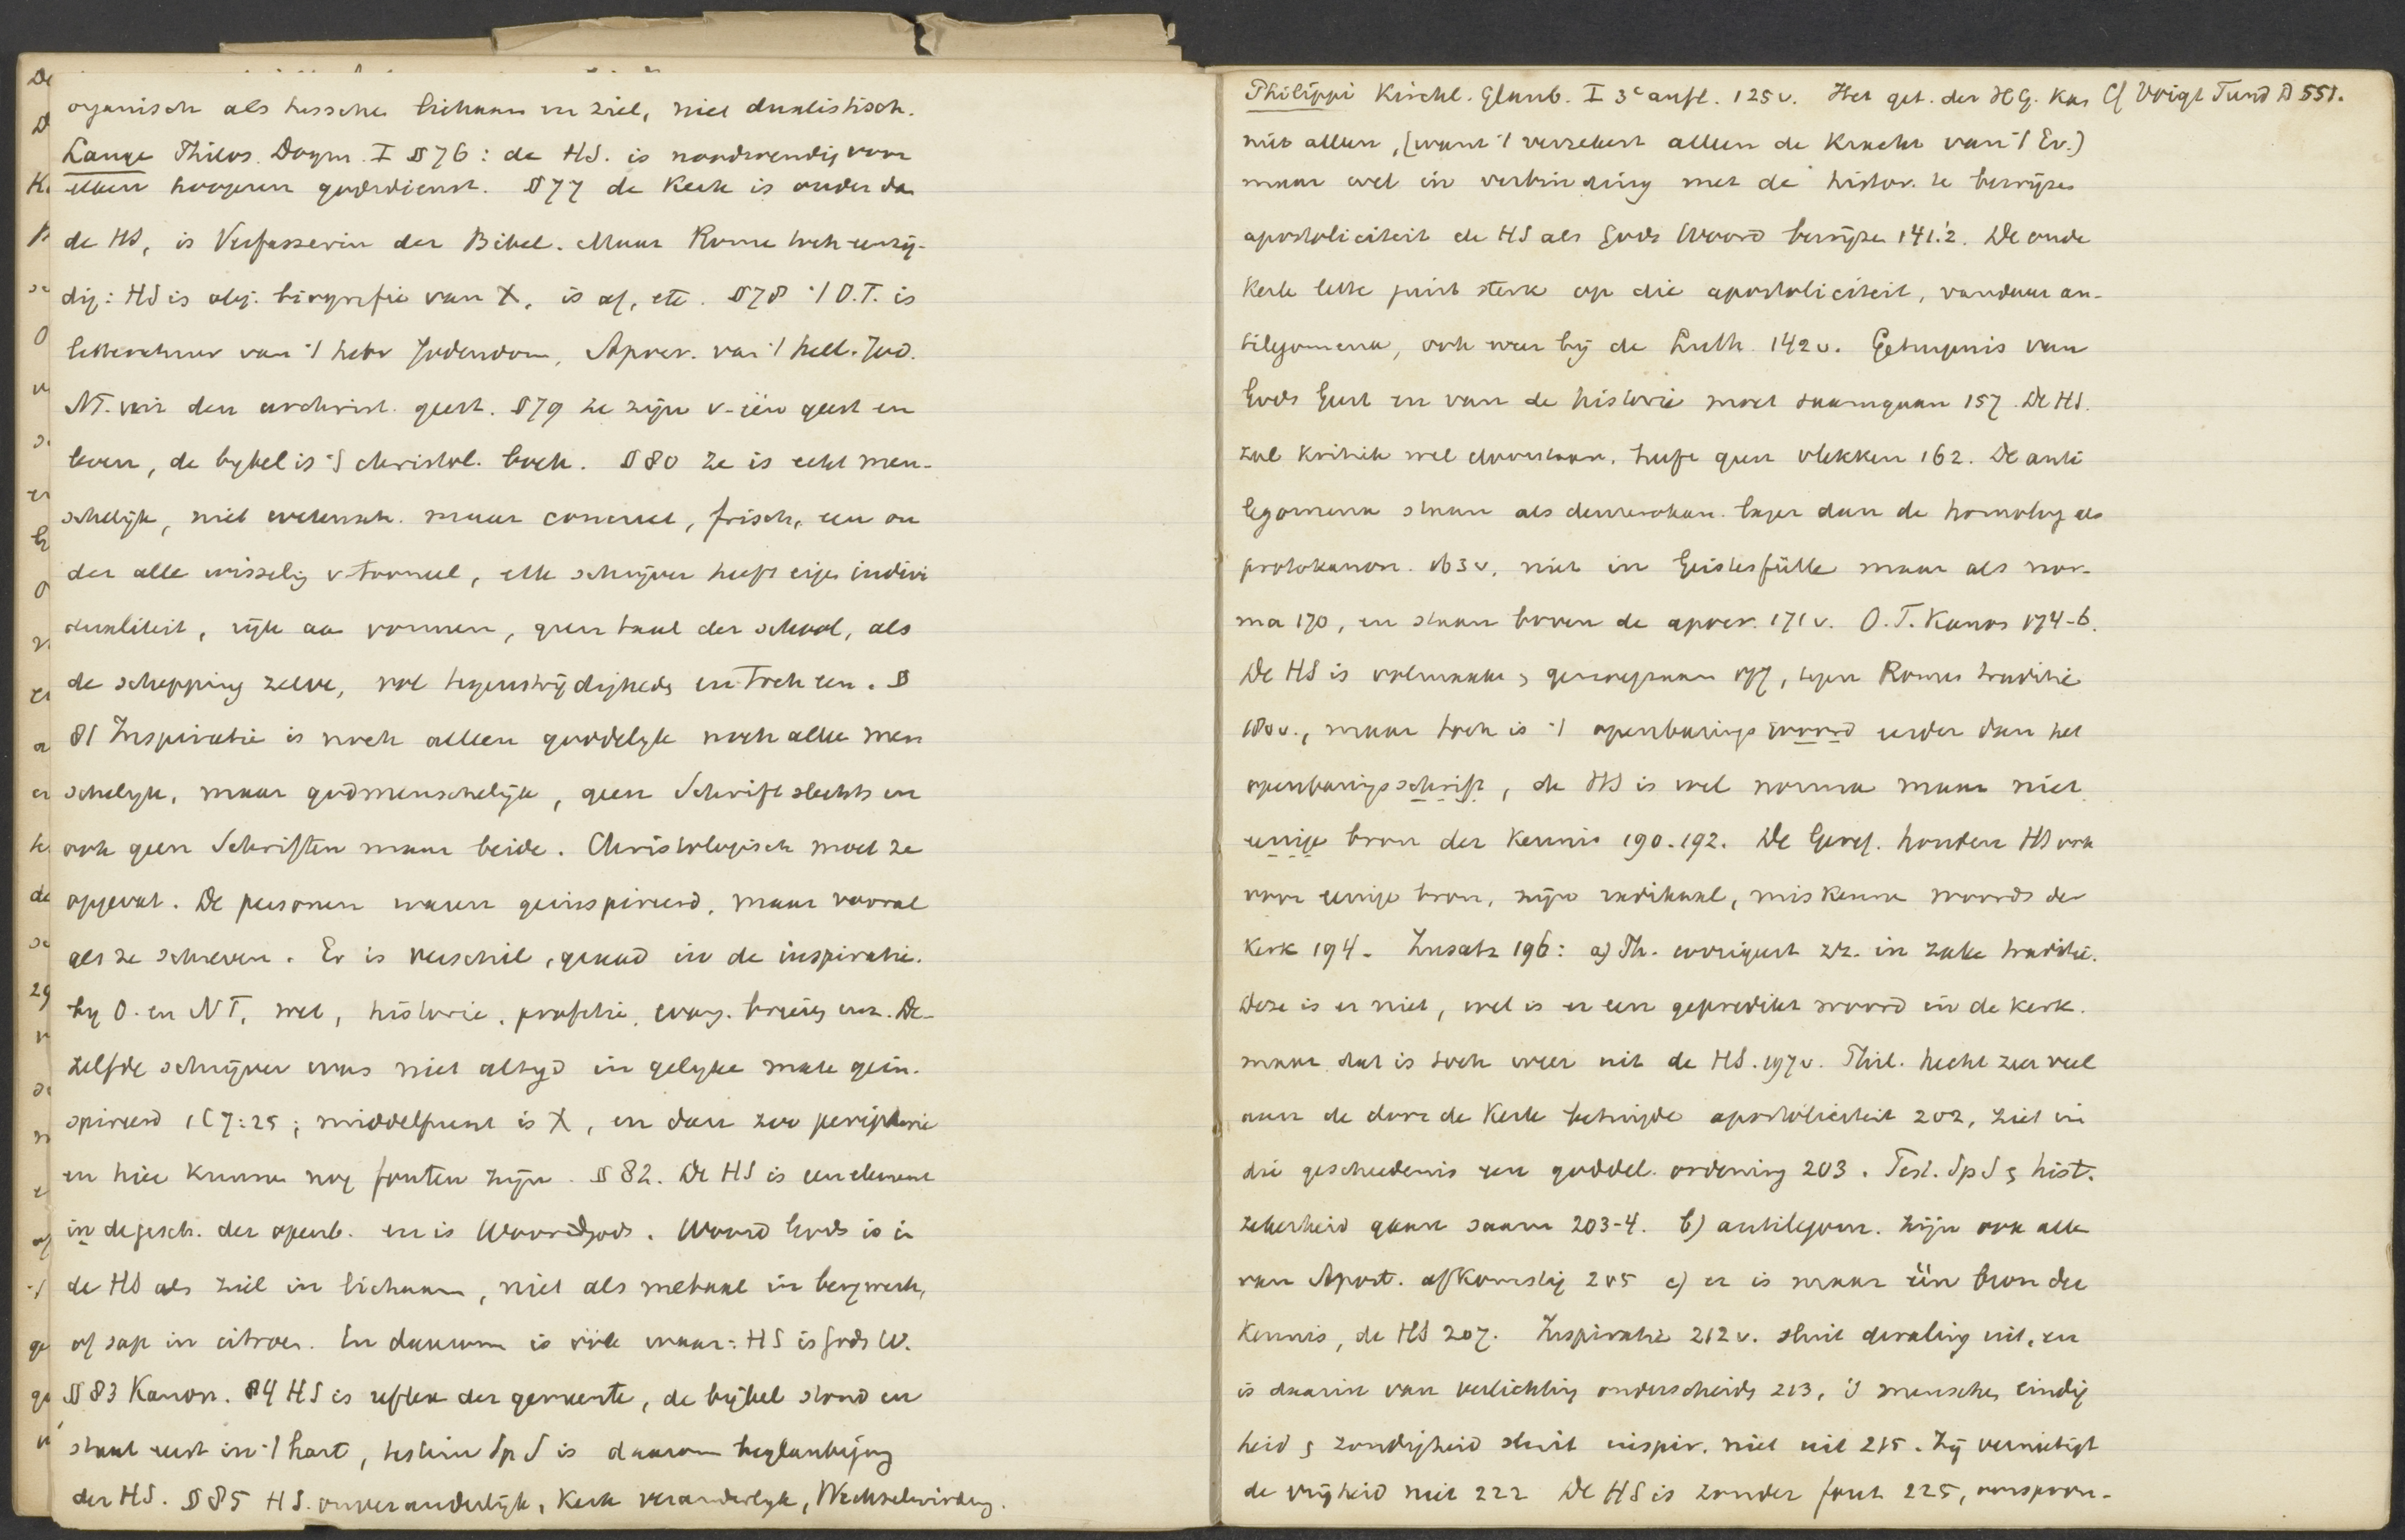 organisch als tusschen lichaam en ziel, niet dualistisch.
Lange Philos. Dogm. I § 76: de HS. is noodwendig voor
elken hoogeren godsdienst. § 77 de Kerk is ouder dan
de HS, is Verfasserin der Bibel. Maar Rome toch eenzij-
dig: HS is obj. biografie van X, is af, etc. § 78 't O.T. is
litteratuur van 't hebr Jodendom, Apocr. van 't hell. Jod.
NT. van den urchrist. geest. § 79 ze zijn v. één geest en
leven, de bybel is 't christol. boek. § 80 Ze is echt men-
schelijk, niet wetensch. maar concreet, frisch, een on
der alle wisseling v. tooneel, elke schrijver heeft eigen indivi
dualiteit, rijk aan vormen, geen taal der school, als
de schepping zelve, vol tegenstrijdigheden en toch een. §
81 Inspiratie is noch alleen goddelyk noch alleen men
schelyk, maar godmenschelijk, geen Schrift slechts en
ook geen Schriften maar beide. Christologisch moet ze
opgevat. De personen waren geinspireerd, maar vooral
als ze schreven. Er is verschil, graad in de inspiratie.
by O. en NT, wet, historie, profetie, evang. brieven enz. De-
zelfde schrijver was niet altyd in gelyke mate gein-
spireerd 1 C 7:25; middelpunt is X, en dan zoo peripherie
en hier kunnen nog fouten zijn. § 82. De HS is een element
in de gesch. der openb. en is Woord Gods. Woord Gods is in
de HS als ziel in lichaam, niet als metaal in bergwerk,
of sap in citroen. En daarom is ook waar: HS is Gods W.
§ 83 Kanon. 84 HS is reflex der gemeente, de bijbel stond en
staat eerst in 't hart, testim Sp S is daarom beglaubigung
der HS. § 85 HS. onveranderlijk, Kerk veranderlyk, Wechselwirkung.
Philippi Kirchl. Glaub. I 3e aufl. 125 v. Het get. der H G. kan Cf Voigt Fund D 551.
niet alleen, (want 't verzekert alleen de Kracht van 't Ev.)
maar wel in verbinding met de histor. te bewijzen
apostoliciteit de HS als Gods Woord bewijzen 141.2. De oude
Kerk lette juist sterk op die apostoliciteit, vandaar an-
tilegomena, ook weer bij de Luth. 142 v. Getuigenis van
Gods Geest en van de historie moet saamgaan 157. De HS.
zal kritiek wel doorstaan, heeft geen vlekken 162. De anti
legomena staan als deuterokan. lager dan de homolog als
protokanon. 163 v. niet in Geistesfülle maar als nor-
ma 170, en staan boven de apocr. 171 v. O.T. Kanon 174-6.
De HS is volmaakt, genoegzaam 177, tegen Romes traditie
180 v., maar toch is 't openbaringswoord eerder dan het
openbaringsschrift, de HS is wel norma maar niet
eenige bron der Kennis 190.192. De Geref. houden HS ook
voor eenige bron, zijn radikaal, miskennen woord der
Kerk 194. Zusatz 196: a) Ph. corrigeert zr. in zake traditie.
Deze is er niet, wel is er een gepredikt woord in de Kerk.
maar dat is toch weer uit de HS. 197 v. Phil. hecht zeer veel
aan de door de Kerk betuigde apostoliciteit 202, ziet in
die geschiedenis een goddel. ordening 203. Test. Sp S, hist.
zekerheid gaan saam 203-4. b) antilegom. zijn ook alle
van Apost. afkomstig 205 c) er is maar één bron der
Kennis, de HS 207. Inspiratie 212 v. sluit dwaling uit, en
is daarin van verlichting onderscheiden 213, 's menschen eindig
heid, zondigheid sluit inspir. niet uit 215. Zij vernietigt
de vrijheid niet 222 De HS is zonder fout 225, oorspron-